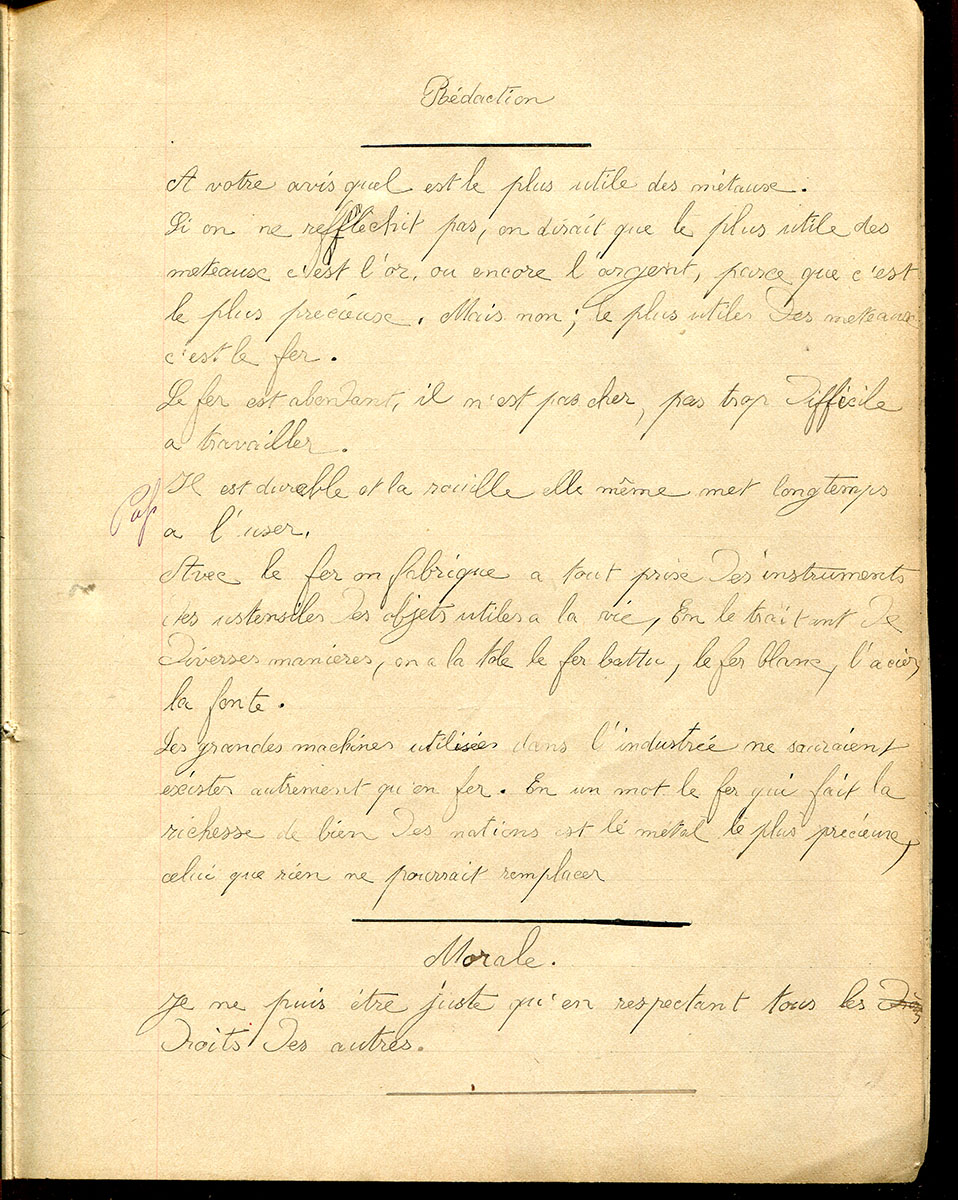 Rédaction
A votre avis quel est le plus utile des métaux.
Si on ne refflechit pas, on dirait que le plus utile des
meteaux c'est l'or, ou encore l'argent, parce que c'est
le plus précieuse. Mais non; le plus utiles des meteaux
c'est le fer.
Le fer est abondant, il n'est pas cher, pas trop difficile
a travailler.
Il est durable et la rouille elle même met longtemps
a l'user.
Avec le fer on fabrique a tout prix des instruments
des ustensiles des objets utiles a la vie, En le traitant de
diverses manieres, on a la tole le fer battu, le fer blanc, l'acier,
la fonte.
Les grandes machines utilisées dans l'industrie ne sauraient
éxister autrement qu'en fer. En un mot le fer qui fait la
richesse de bien des nations est lé métal le plus précieux,
celui que rien ne pourrait remplacer
Morale.
Je ne puis être juste qu'en respectant tous les
droits des autres.